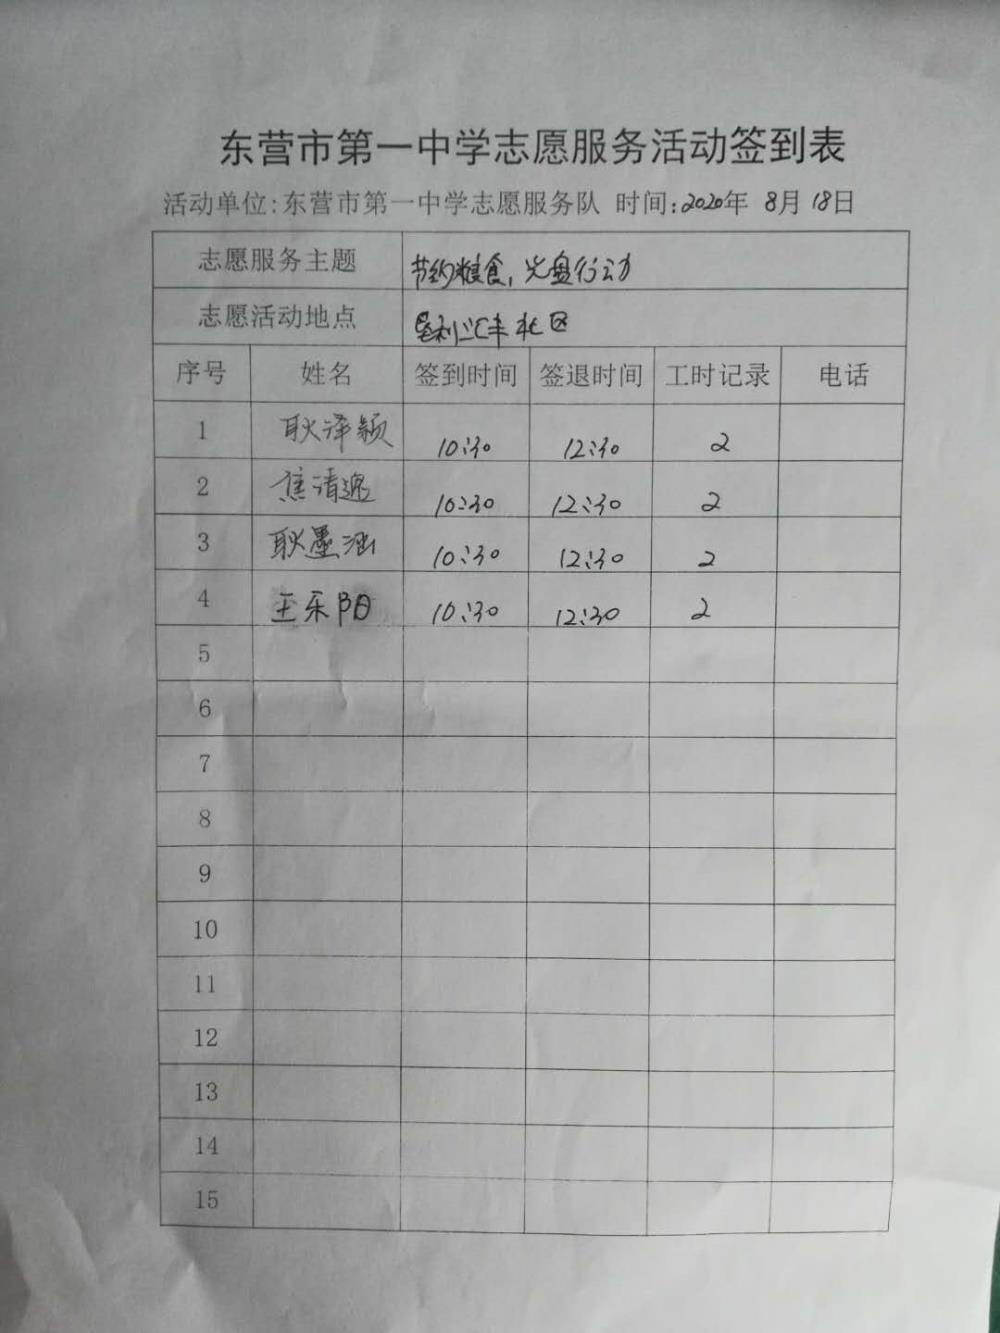 东营市第一中学志愿服务活动签到表
活动单位:东营市第一中学志愿服务队 时间:2020年 8月 18日
志愿服务主题 节约粮食,光盘行动
志愿活动地点 垦利汇丰北区
序号 姓名 签到时间 签退时间 工时记录 电话
1 耿泽颖 10:30 12:30 2
2 焦清逸 10:30 12:30 2
3 耿墨涵 10:30 12:30 2
4 王乐阳 10:30 12:30 2
5
6
7
8
9
10
11
12
13
14
15